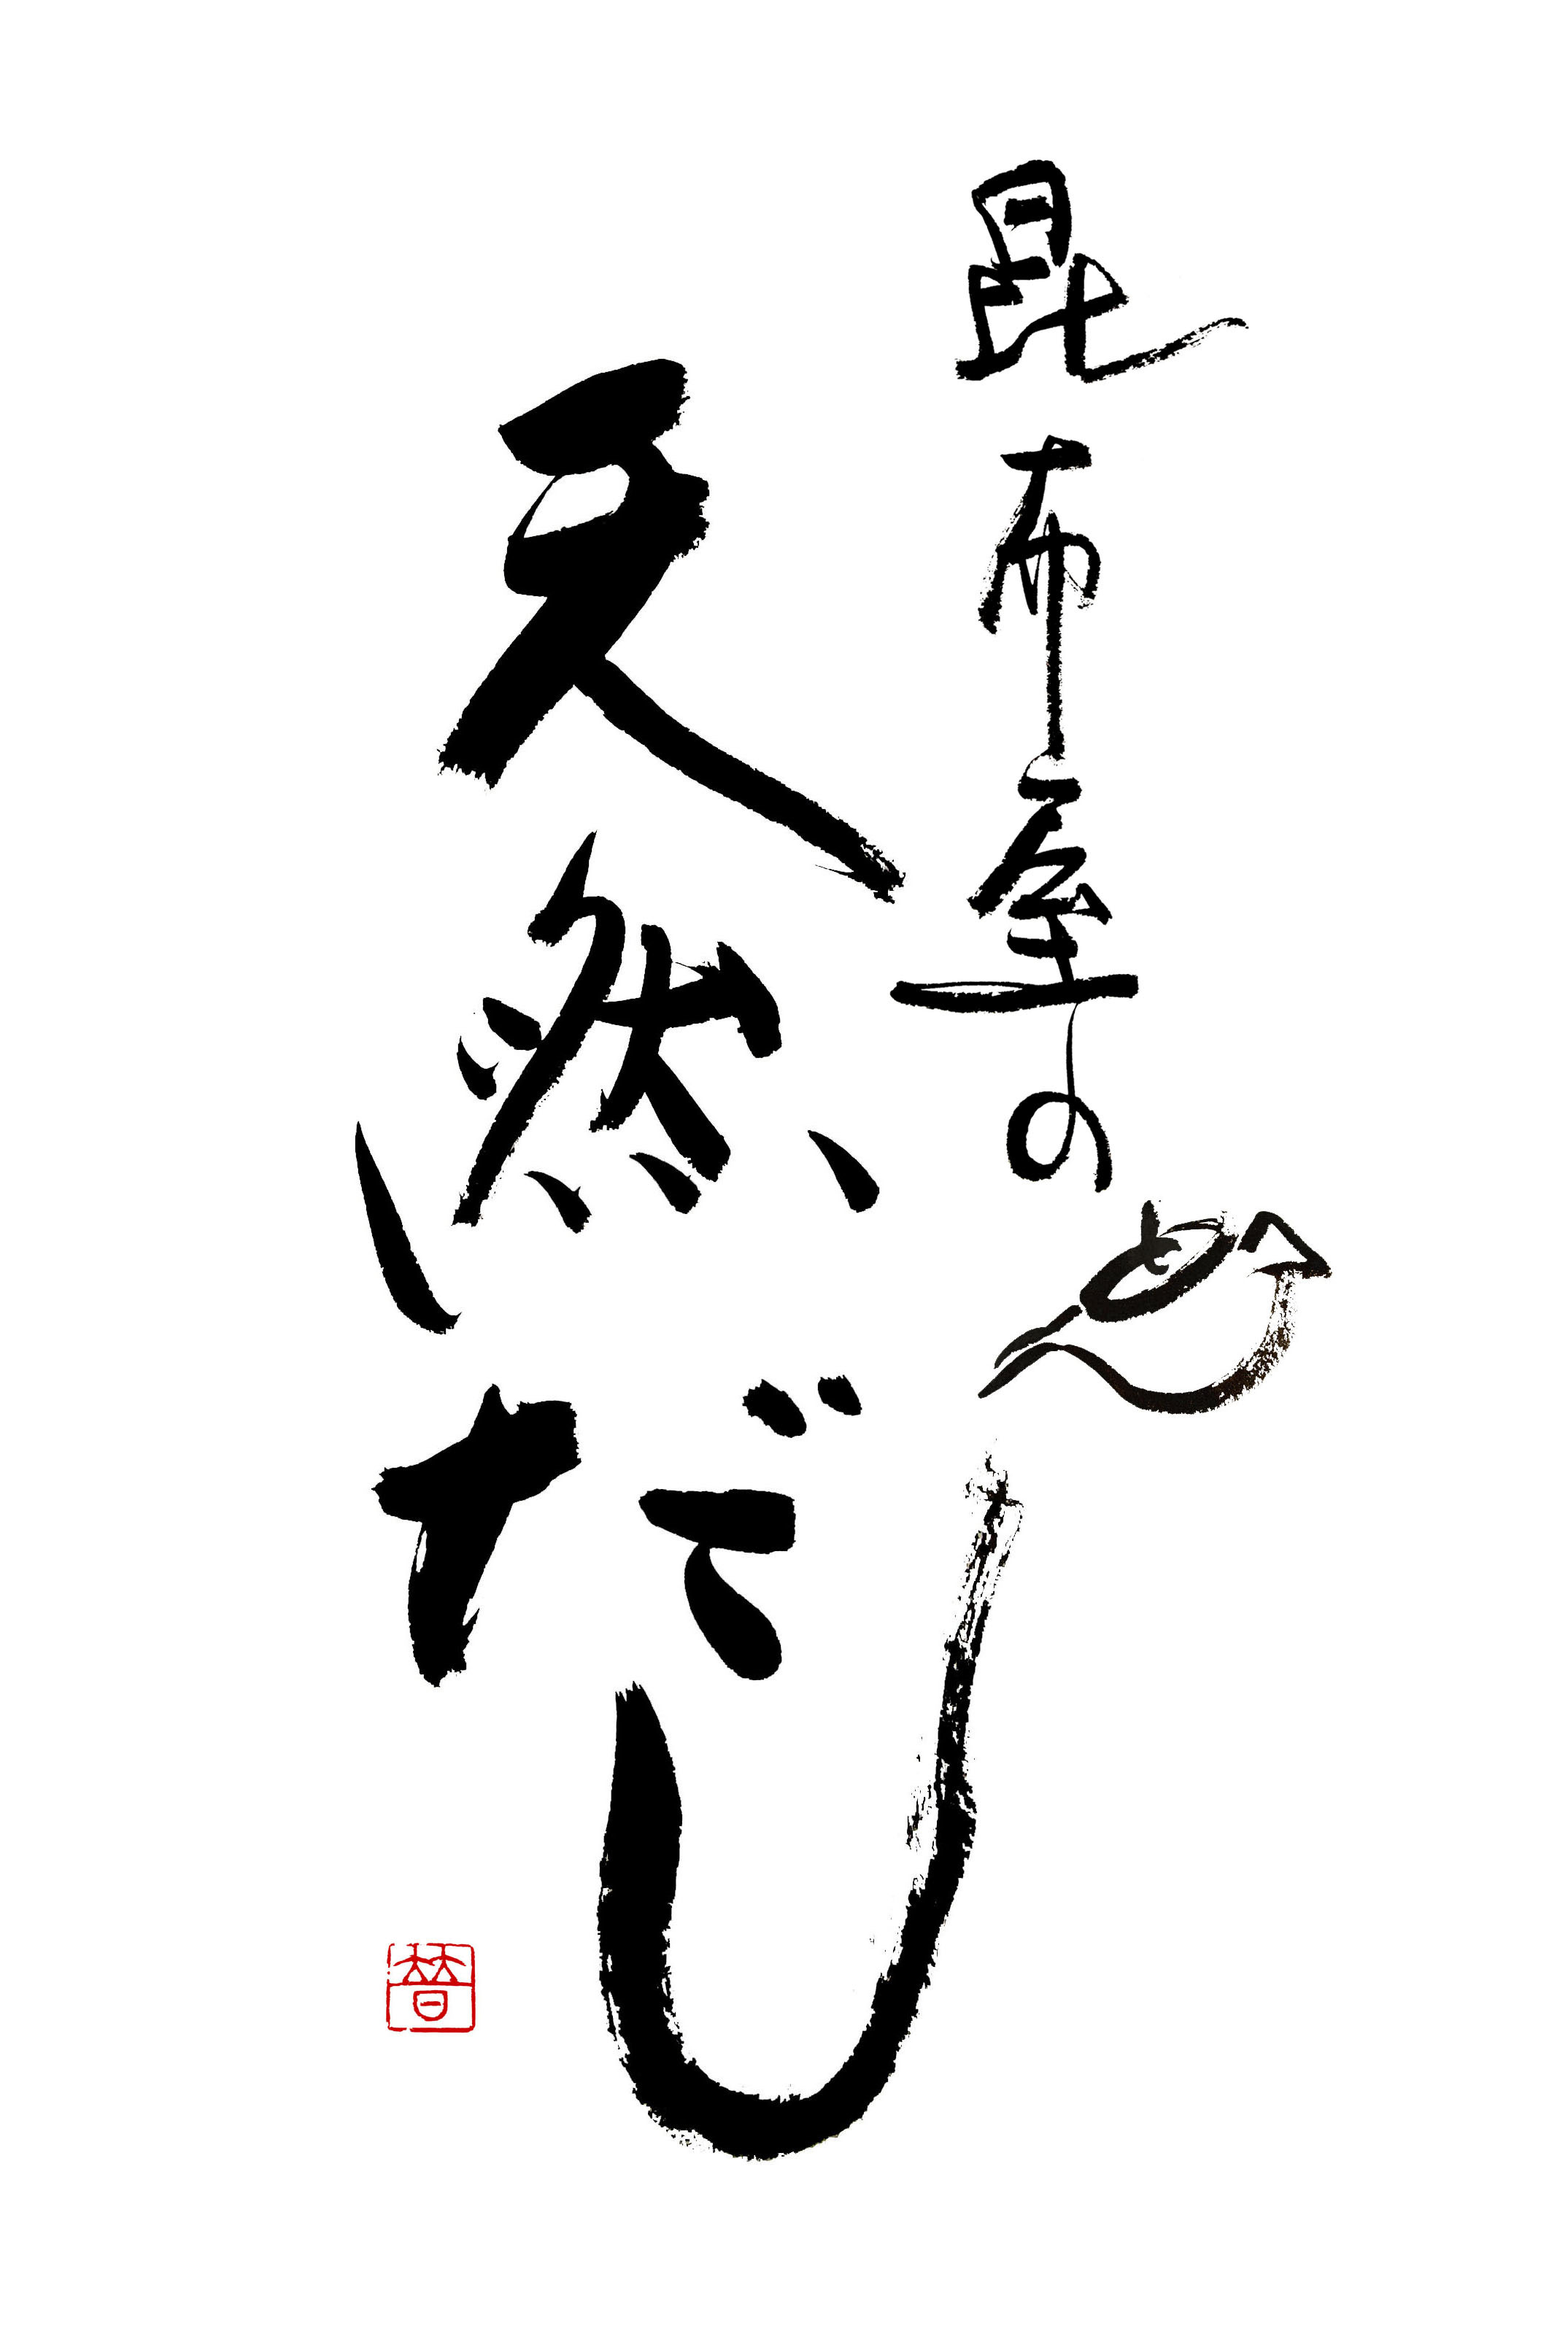 昆布屋の
天然だし